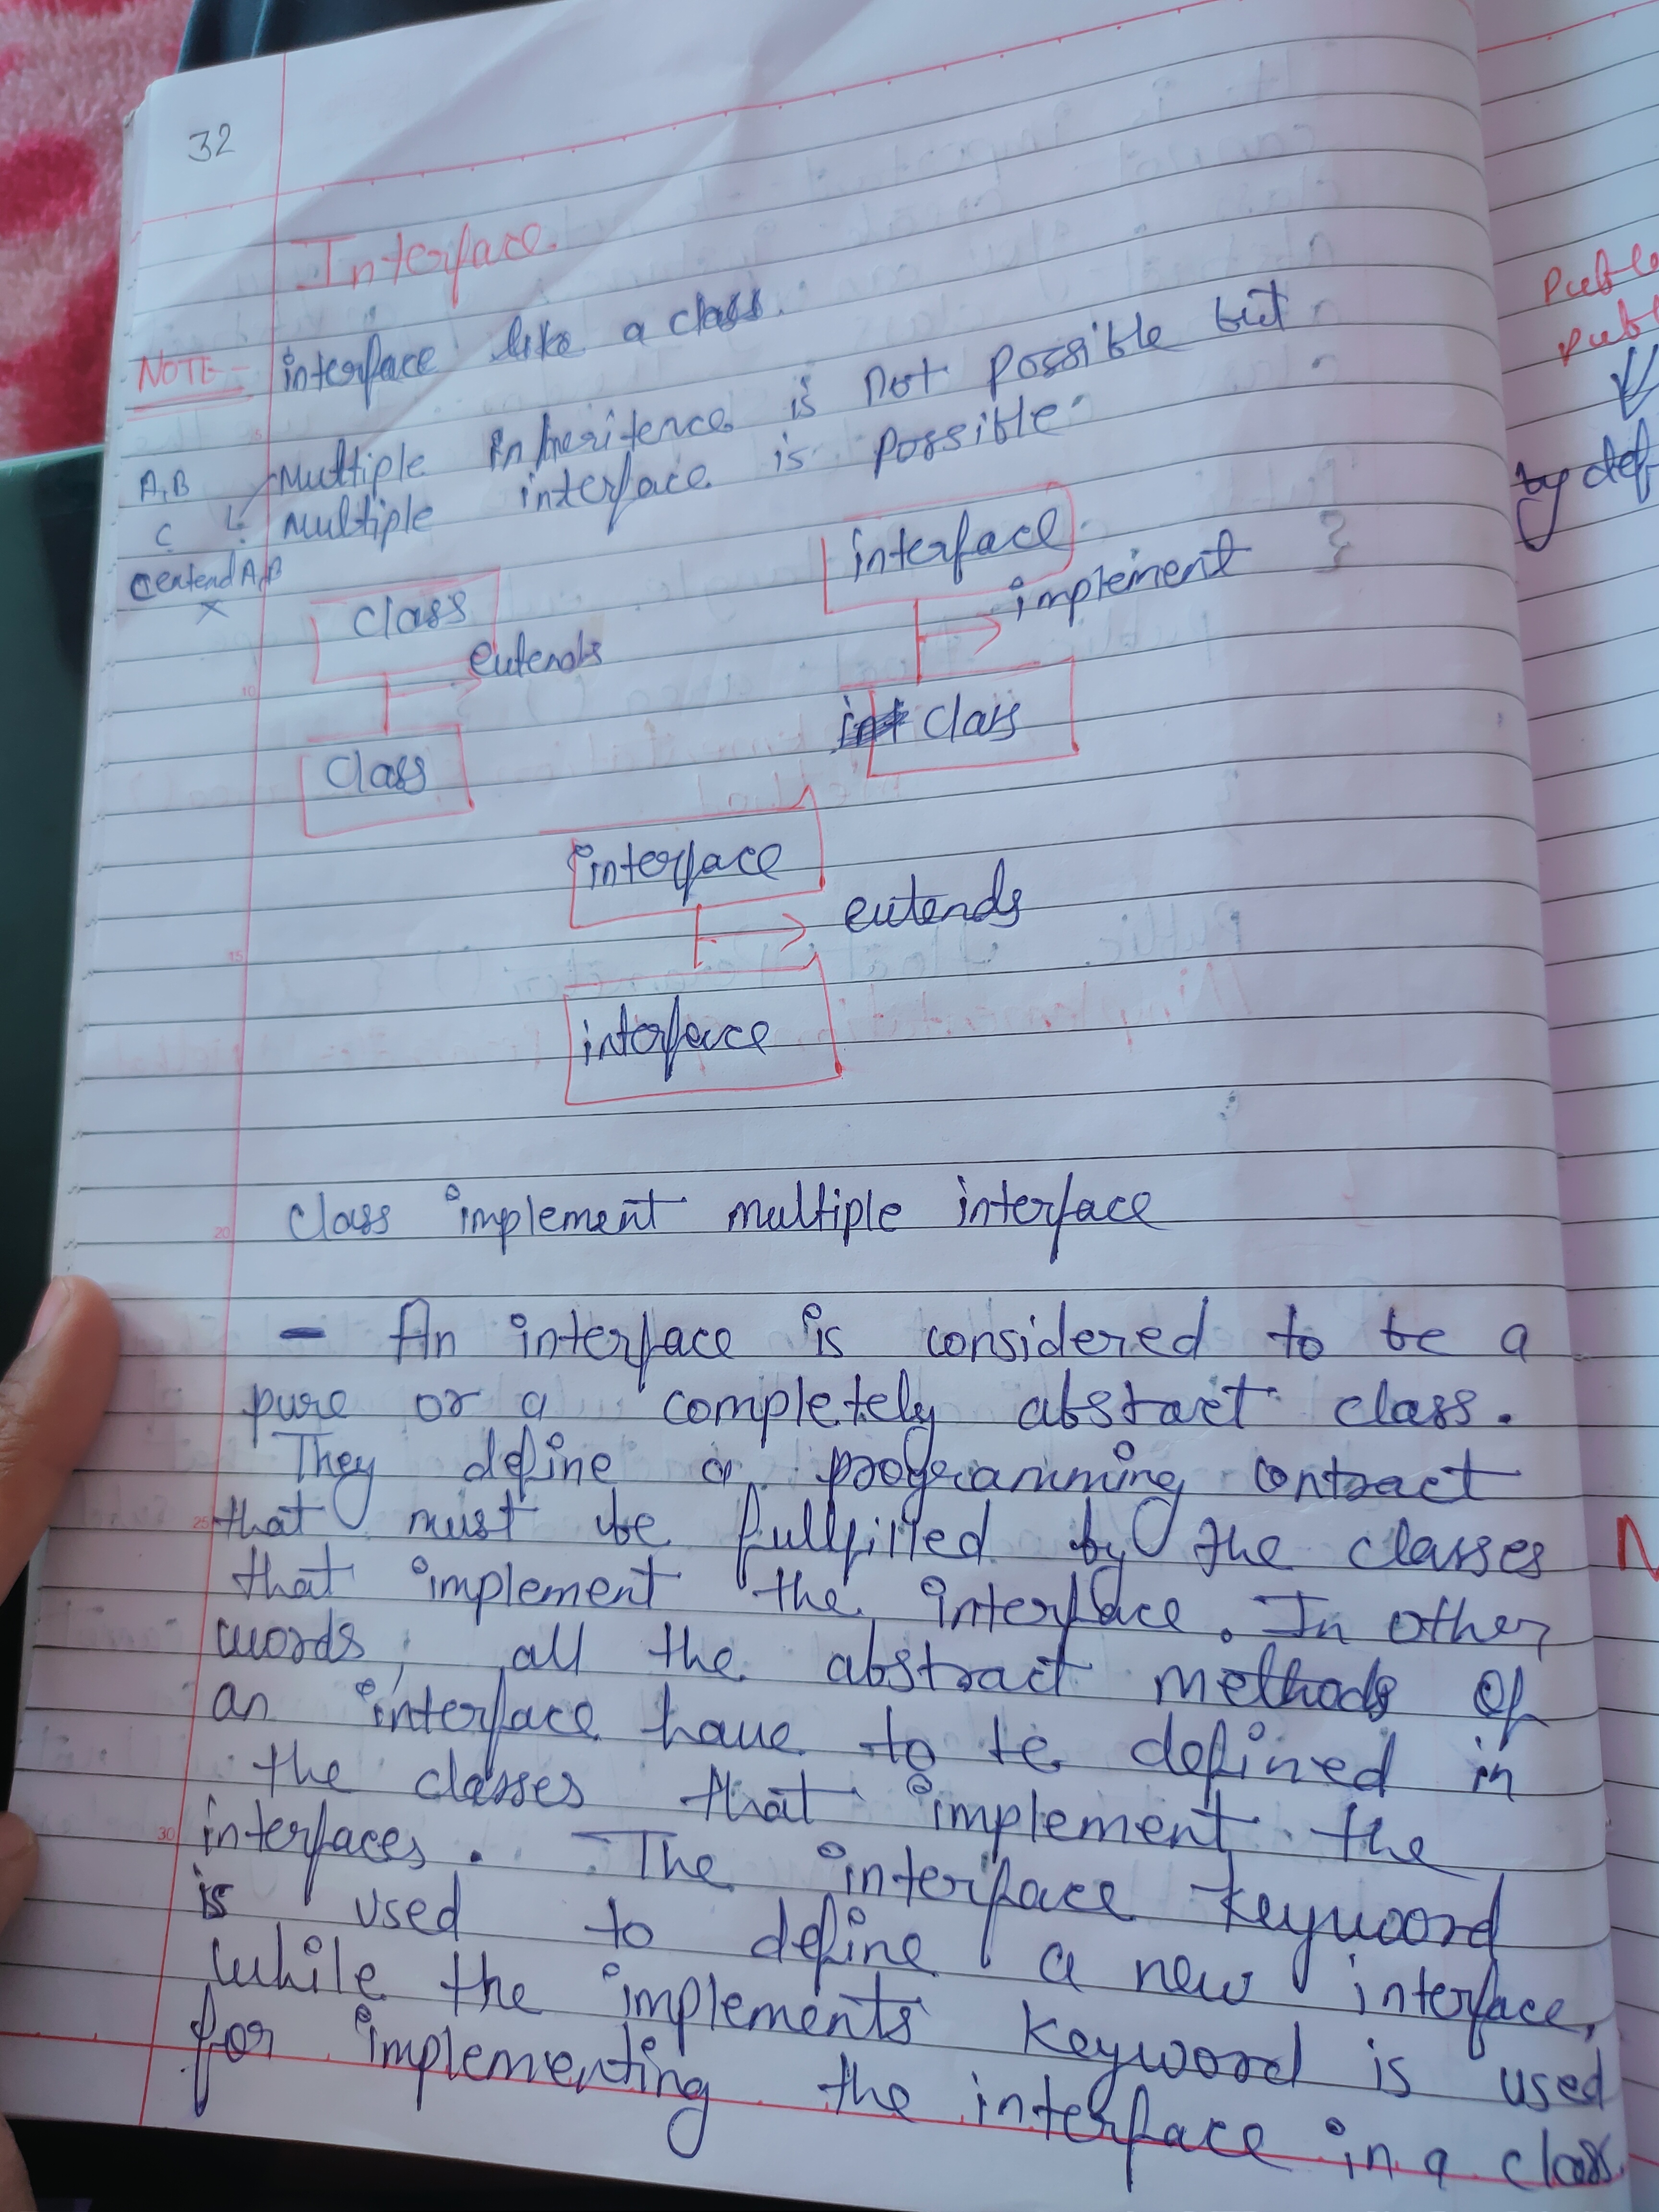 32
Interface
NOTE - interface like a class.
Multiple Inheritence is not possible but
multiple interface is possible
A,B
C
C extend A,B
×
class
extends
class
interface
implement
class
interface
extends
interface
class implement multiple interface
- An interface is considered to be a
pure or a completely abstract class.
They define a programming contract
that must be fullfilled by the classes
that implement the interface. In other
words, all the abstract methods of
an interface have to be defined in
the classes that implement the
interfaces. The interface keyword
is used to define a new interface,
while the implements keyword is used
for implementing the interface in a class.
by def